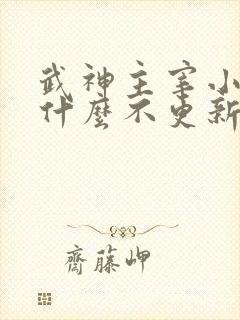 武神主宰小
什麼不更新
齋藤岬